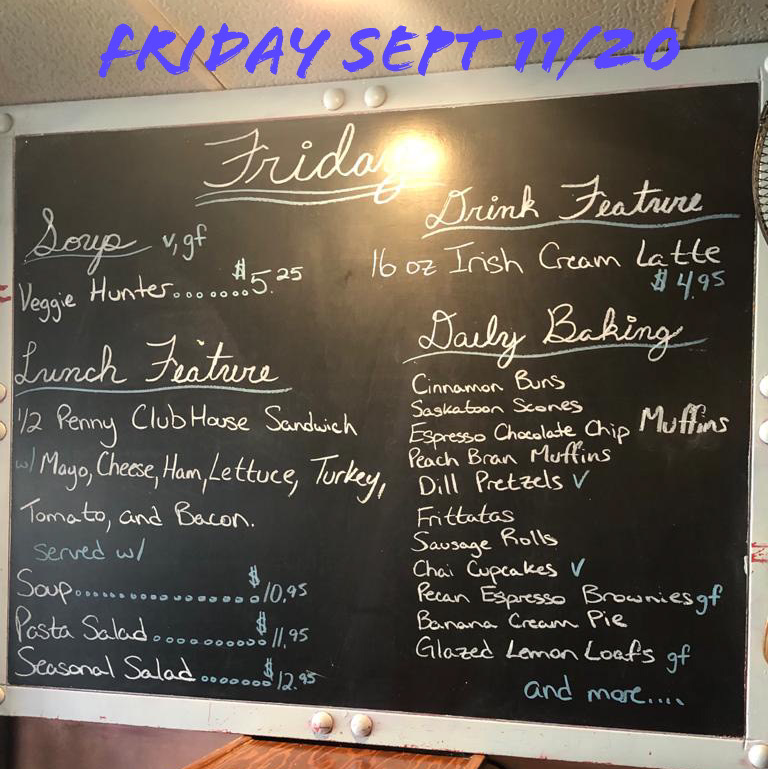 FRIDAY SEPT 11/20
Friday
Soup v, gf
Veggie Hunter.......$5.25
Lunch Feature
1/2 Penny Club House Sandwich
w/ Mayo, Cheese, Ham, Lettuce, Turkey,
Tomato, and Bacon.
served w/
Soup..................$10.95
Pasta Salad...........$11.95
Seasonal Salad.......$12.95
Drink Feature
16 oz Irish Cream Latte
$4.95
Daily Baking
Cinnamon Buns
Saskatoon Scones
Espresso Chocolate Chip Muffins
Peach Bran Muffins
Dill Pretzels v
Frittatas
Sausage Rolls
Chai Cupcakes v
Pecan Espresso Brownies gf
Banana Cream Pie
Glazed Lemon Loafs gf
and more....